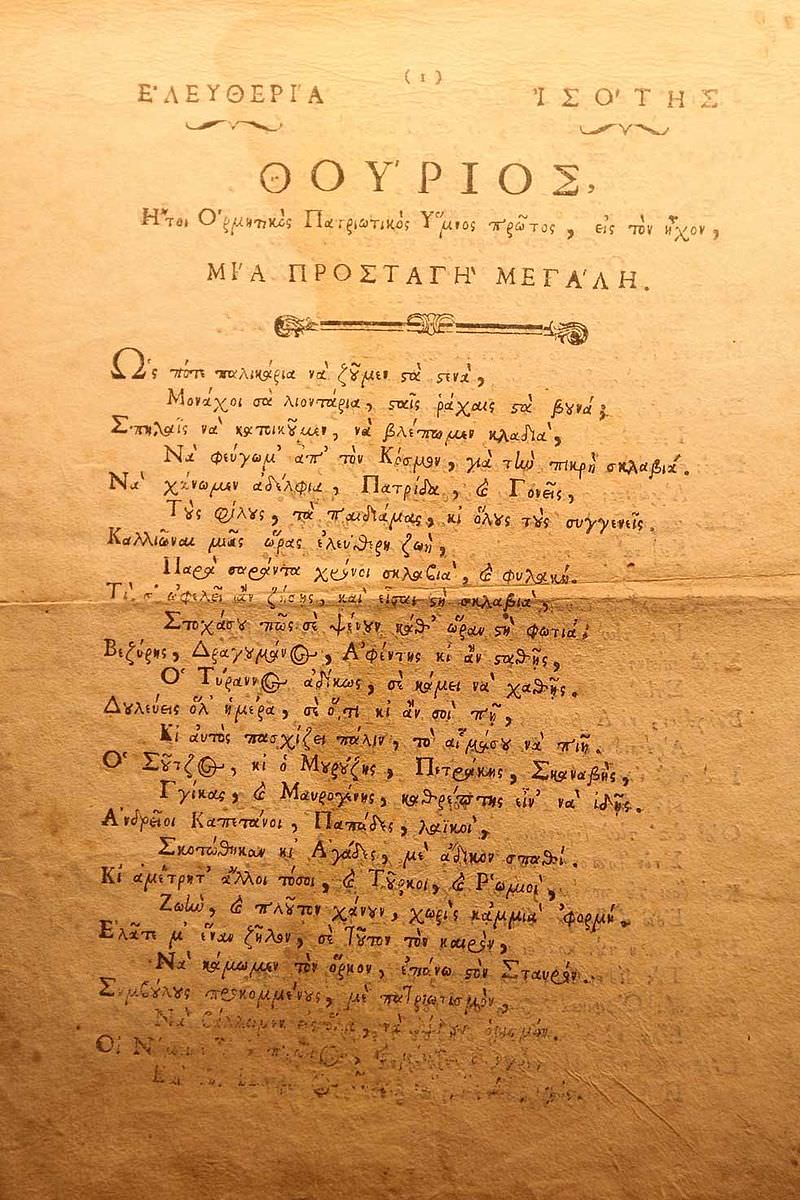 (1)
Ε᾿ΛΕΥΘΕΡΙ´Α ᾿ΙΣΟ´ΤΗΣ
ΘΟΥ´ΡΙΟΣ,
Η῎τοι Ο῾ρμητικὸς Πατριωτικὸς Υ῞μνος πρῶτος, εἰς τὸν ἦχον,
ΜΙ´Α ΠΡΟΣΤΑΓΗ` ΜΕΓΑ´ΛΗ.
Ω῾ς πότε παλικάρια νὰ ζȣ͂μεν ϛὰ ϛενὰ,
Μονάχοι σὰ λιοντάρια, ϛαῖς ῥάχαις ϛὰ βȣνά;
Σπηλαῖς νὰ κατοικȣ͂μεν, νὰ βλέπωμεν κλαδιὰ,
Νὰ φεύγωμ᾿ ἀπ᾿ τὸν Κόσμον, γιὰ τὴν πικρὴ σκλαβιά.
Νὰ χάνωμεν ἀδέλφια, Πατρίδα, ϗ Γονεῖς,
Τȣ̀ς φίλȣς, τὰ παιδιάμας, κι ὅλȣς τȣ̀ς συγγενεῖς.
Καλλιῶναι μιᾶς ὥρας ἐλεύθερη ζωὴ,
Παρὰ σαράντα χρόνοι σκλαβιὰ, ϗ φυλακή.
Τί σ᾿ ὠφελεῖ ἂν ζήσῃς, καὶ εἶσαι ϛὴ σκλαβιὰ,
Στοχάσȣ πῶς σὲ ψένȣν καθ᾿ ὥραν ϛὴ φωτιά;
Βεζύρης, Δραγȣμάνος, Α᾿φέντης κι ἂν ϛαθῇς,
Ο῾ Τύραννος ἀδίκως, σὲ κάμει νὰ χαθῇς.
Δȣλεύεις ὅλ᾿ ἡμέρα, σὲ ὅ,τι κι ἂν σοὶ πῇ,
Κι αὐτὸς πασχίζει πάλιν, τὸ αἷμάσȣ νὰ πιῇ.
Ο῾ Σȣ͂τζος, κι ὁ Μȣρȣ́ζης, Πετράκης, Σκαναβῆς,
Γγίκας, ϗ Μαυρογένης, καθρέπτης εἶν᾿ νὰ ἰδῇς.
Α᾿νδρεῖοι Καπετάνοι, Παπάδες, λαϊκοὶ,
Σκοτώθηκαν κι Α᾿γάδες, μὲ ἄδικον σπαθί.
Κι ἀμέτρητ᾿ ἄλλοι τόσοι, ϗ Τȣ͂ρκοι, ϗ Ρ῾ωμιοὶ,
Ζωὴν, ϗ πλȣ͂τον χάνȣν, χωρὶς καμμιὰ ᾿φορμή.
Ε᾿λᾶτε μ᾿ ἕναν ζῆλον, σὲ τȣ͂τον τὸν καιρὸν,
Νὰ κάμωμεν τὸν ὅρκον, ἐπάνω ϛὸν Σταυρόν.
Συμβȣ́λȣς προκομμένȣς, μὲ πατριωτισμὸν,
Νὰ βάλλωμεν εἰς ὅλα, νὰ ὁρισμόν.
Οἱ